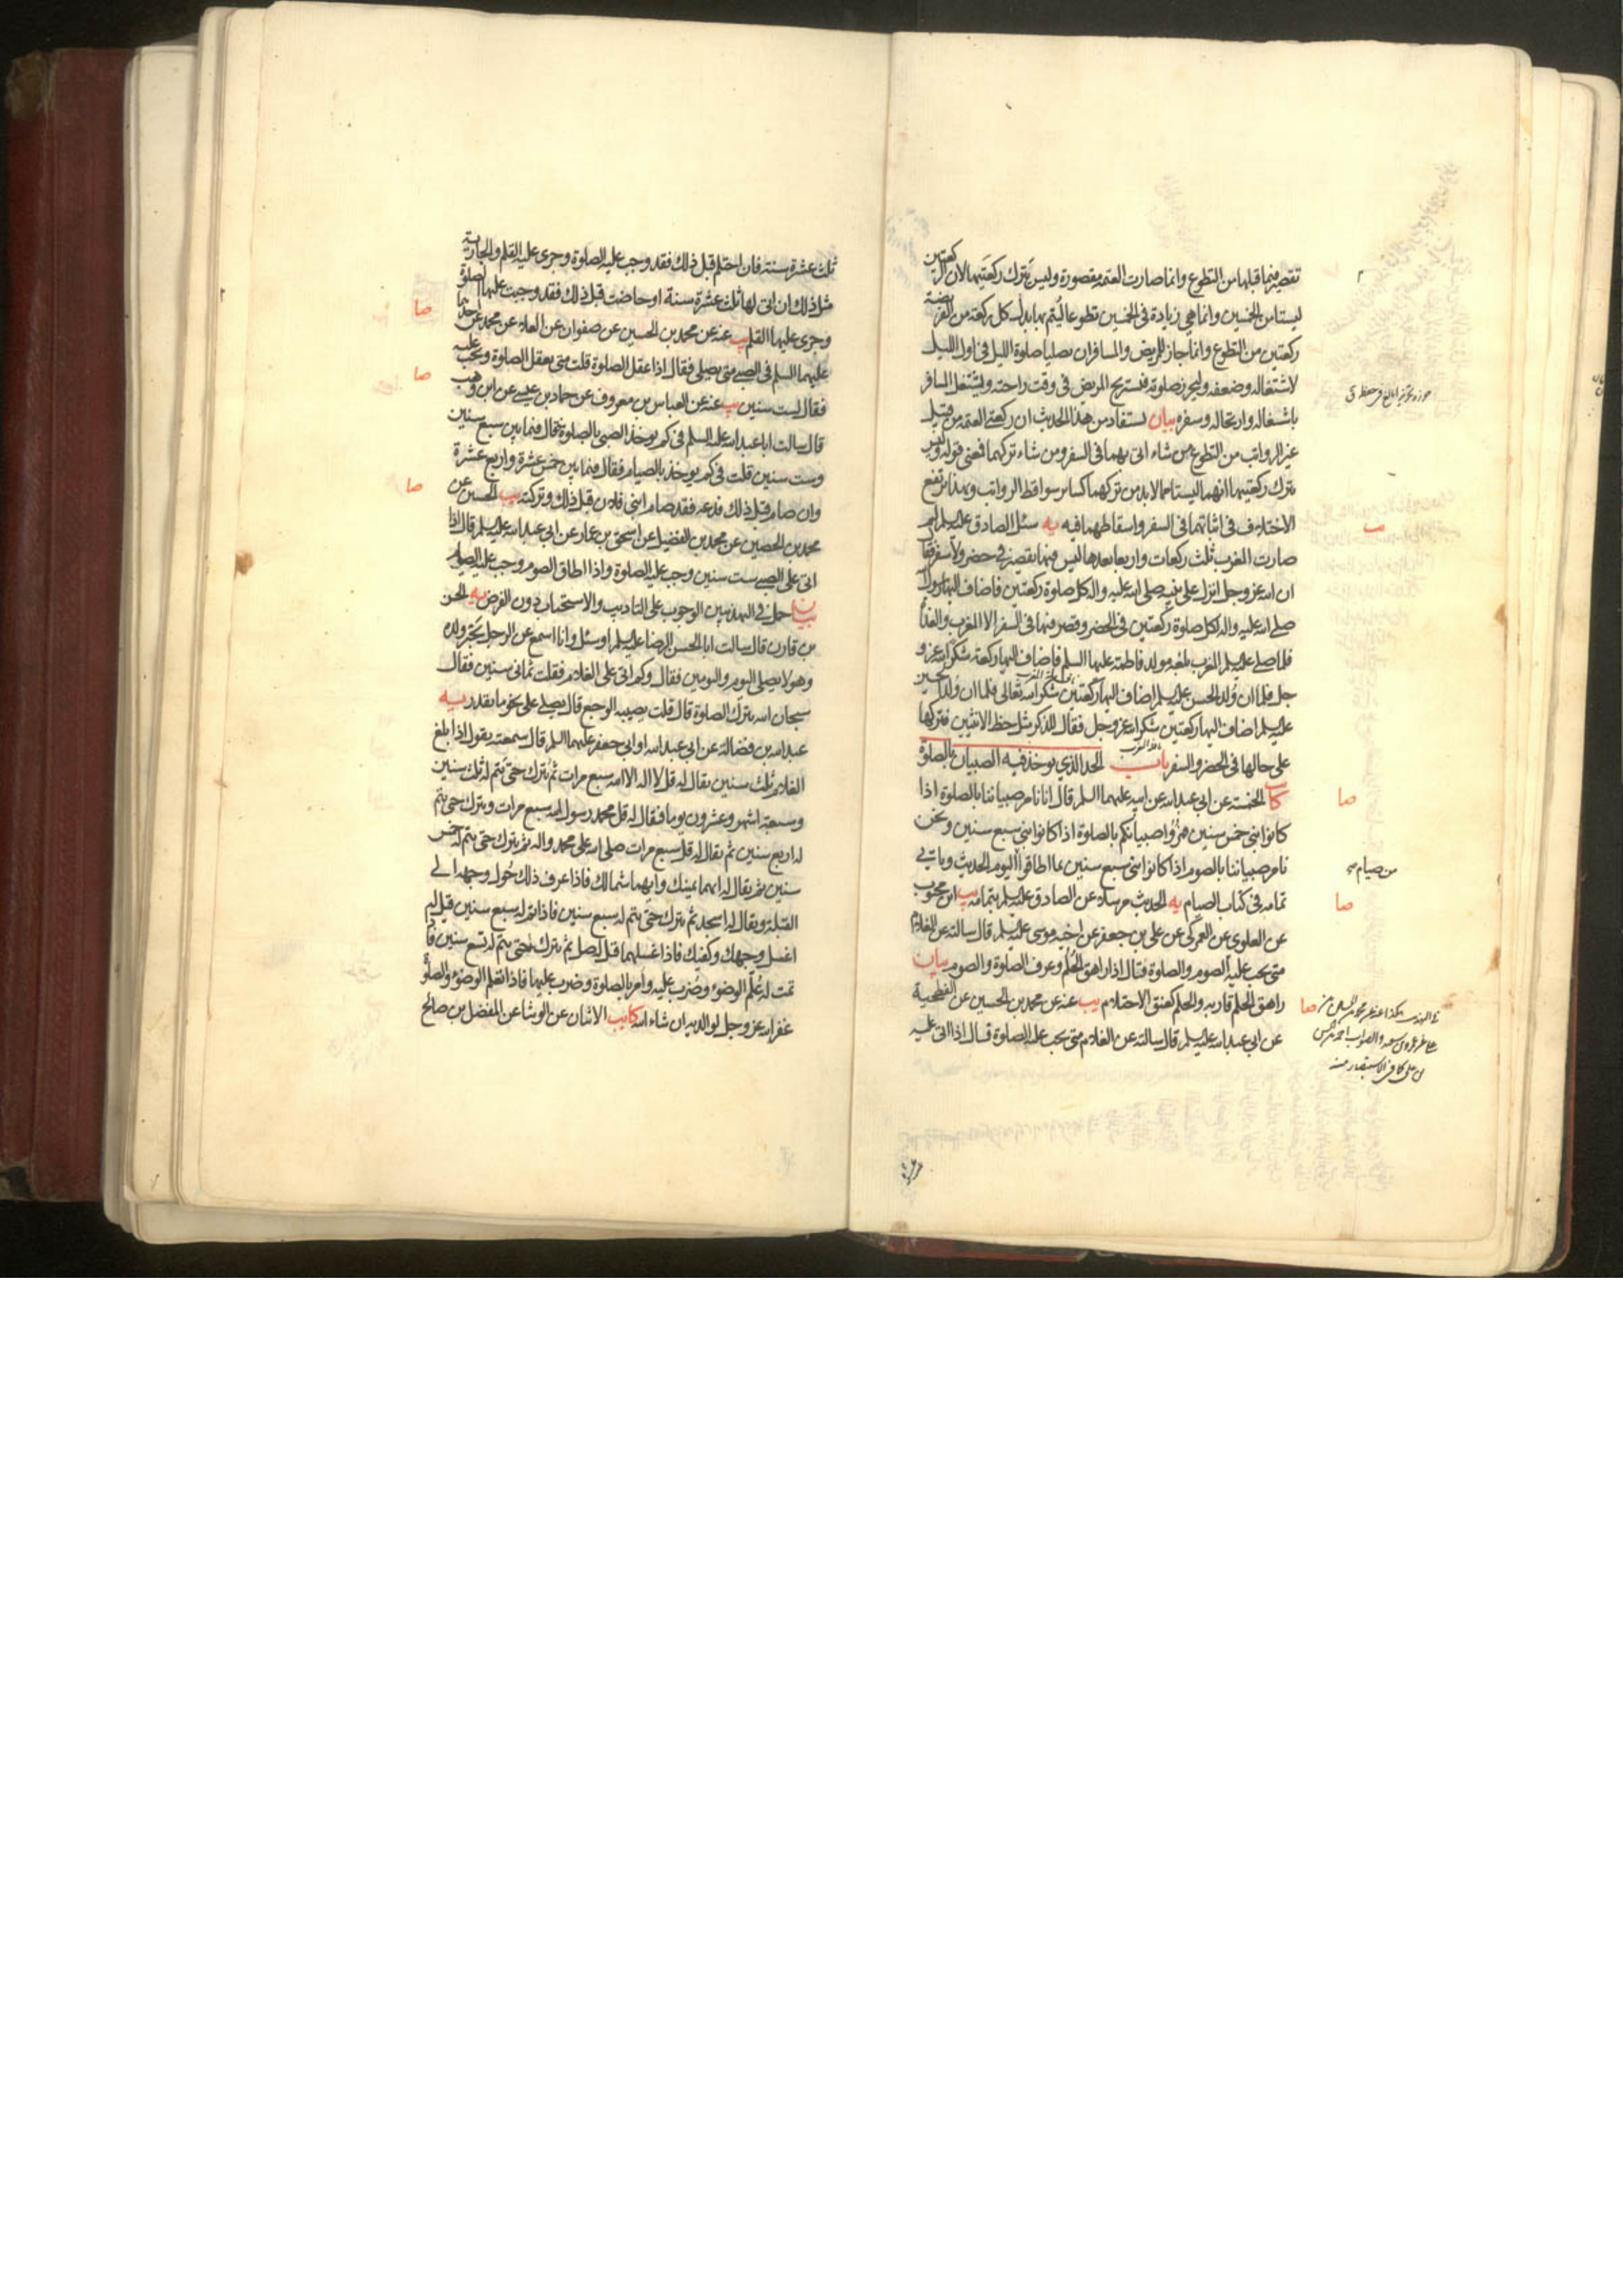 تقصير فيما قبلها من التطوع وانما صارت العتمة مقصورة وليس تترك ركعتيها لان الركعتين
ليستا من الخمسين وانما هي زيادة في الخمسين تطوعا ليتم بها بدل كل ركعة من الفريضة
ركعتين من التطوع وانما جاز للمريض والمسافر ان يصليا صلوة الليل في اول الليل
لاشتغاله وضعفه وليحرز صلوته فيستريح المريض في وقت راحته وليشتغل المسافر
باشتغاله وارتحاله وسفره بيان يستفاد من هذا الحديث ان ركعتي العتمة من قبيل
غير الرواتب من التطوع من شاء اتى بهما في السفر ومن شاء تركهما فمعنى قوله وليس
تترك ركعتيها انهما ليستا مما لابد من تركهما كساير سواقط الرواتب وبهذا يرتفع
الاختلاف في اثباتهما في السفر واسقاطهما فيه يه سئل الصادق عليه السلم لم
صارت المغرب ثلث ركعات واربعا بعدها ليس فيها تقصير في حضر ولا سفر فقال
ان الله عز وجل انزل على نبيه صلى الله عليه واله كل صلوة ركعتين فاضاف اليها رسول الله
صلى الله عليه واله لكل صلوة ركعتين في الحضر وقصر فيها في السفر الا المغرب والغداة
فلما صلى عليه السلم المغرب بلغه مولد فاطمة عليها السلم فاضاف اليها ركعة شكرا لله عز و
جل فلما ان ولد الحسن عليه السلم اضاف اليها ركعتين شكرا لله تعالى فلما ان ولد الحسين
عليه السلم اضاف اليها ركعتين شكرا لله عز وجل فقال للذكر مثل حظ الانثيين فتركها
على حالها في الحضر والسفر باب الحد الذي يوخذ فيه الصبيان بالصلوة
كا الخمسة عن ابي عبد الله عن ابيه عليهما السلم قال انا نامر صبياننا بالصلوة اذا
كانوا بني خمس سنين فمروا صبيانكم بالصلوة اذا كانوا بني سبع سنين ونحن
نامر صبياننا بالصوم اذا كانوا بني سبع سنين بما اطاقوا اليوم الحديث وياتي
تمامه في كتاب الصيام يه الحديث مرسلا عن الصادق عليه السلم بتمامه يب ابن محبوب
عن العلوي عن العمركي عن علي بن جعفر عن اخيه موسى عليه السلم قال سالته عن الغلام
متى يجب عليه الصوم والصلوة فقال اذا راهق الحلم وعرف الصلوة والصوم بيان
راهق الحلم قاربه والحلم كعنق الاحتلام يب عنه عن محمد بن الحسين عن الفطحية
عن ابي عبد الله عليه السلم قال سالته عن الغلام متى يجب عليه الصلوة قال اذا اتى عليه
صا
من صيام
صا
صا
ثلث عشرة سنة فان احتلم قبل ذلك فقد وجب عليه الصلوة وجرى عليه القلم والجارية
مثل ذلك ان اتى لها ثلث عشرة سنة او حاضت قبل ذلك فقد وجبت عليها الصلوة
وجرى عليها القلم يب عنه عن محمد بن الحسين عن صفوان عن العلاء عن محمد عن احدهما
عليهما السلم في الصبي متى يصلي فقال اذا عقل الصلوة قلت متى يعقل الصلوة ويجب عليه
فقال لست سنين يب عنه عن العباس بن معروف عن حماد بن عيسى عن ابن وهب
قال سالت ابا عبد الله عليه السلم في كم يوخذ الصبي بالصلوة فقال فيما بين سبع سنين
وست سنين قلت في كم يوخذ بالصيام فقال فيما بين خمس عشرة واربع عشرة
وان صام قبل ذلك فدعه فقد صام ابني فلان قبل ذلك وتركته يب الحسين عن
محمد بن الحصين عن محمد بن الفضيل عن اسحق بن عمار عن ابي عبد الله عليه السلم قال اذا
اتى على الصبي ست سنين وجب عليه الصلوة واذا اطاق الصوم وجب عليه الصيام
بيان حمل في التهذيبين الوجوب على التاديب والاستحباب دون الفرض يه الحسن
بن قارن قال سالت ابا الحسن الرضا عليه السلم او سئل وانا اسمع عن الرجل يختر ولده
وهو لا يصلي اليوم واليومين فقال وكم اتى على الغلام فقلت ثماني سنين فقال
سبحان الله يترك الصلوة قال قلت يصيبه الوجع قال يصلي على نحو ما يقدر يه
عبد الله بن فضالة عن ابي عبد الله او ابي جعفر عليهما السلم قال سمعته يقول اذا بلغ
الغلام ثلث سنين يقال له قل لا اله الا الله سبع مرات ثم يترك حتى يتم له ثلث سنين
وسبعة اشهر وعشرون يوما فيقال له قل محمد رسول الله سبع مرات ويترك حتى يتم
له اربع سنين ثم يقال له قل سبع مرات صلى الله على محمد واله ثم يترك حتى يتم له خمس
سنين ثم يقال له ايهما يمينك وايهما شمالك فاذا عرف ذلك حول وجهه الى
القبلة ويقال له اسجد ثم يترك حتى يتم له سبع سنين فاذا تم له سبع سنين قيل له
اغسل وجهك وكفيك فاذا غسلهما قيل له صل ثم يترك حتى يتم له تسع سنين فاذا
تمت له علم الوضوء وضرب عليه وامر بالصلوة وضرب عليها فاذا تعلم الوضوء والصلوة
غفر الله عز وجل لوالديه ان شاء الله كا يب الاثنان عن الوشا عن المفضل بن صالح
صا
صا
صا